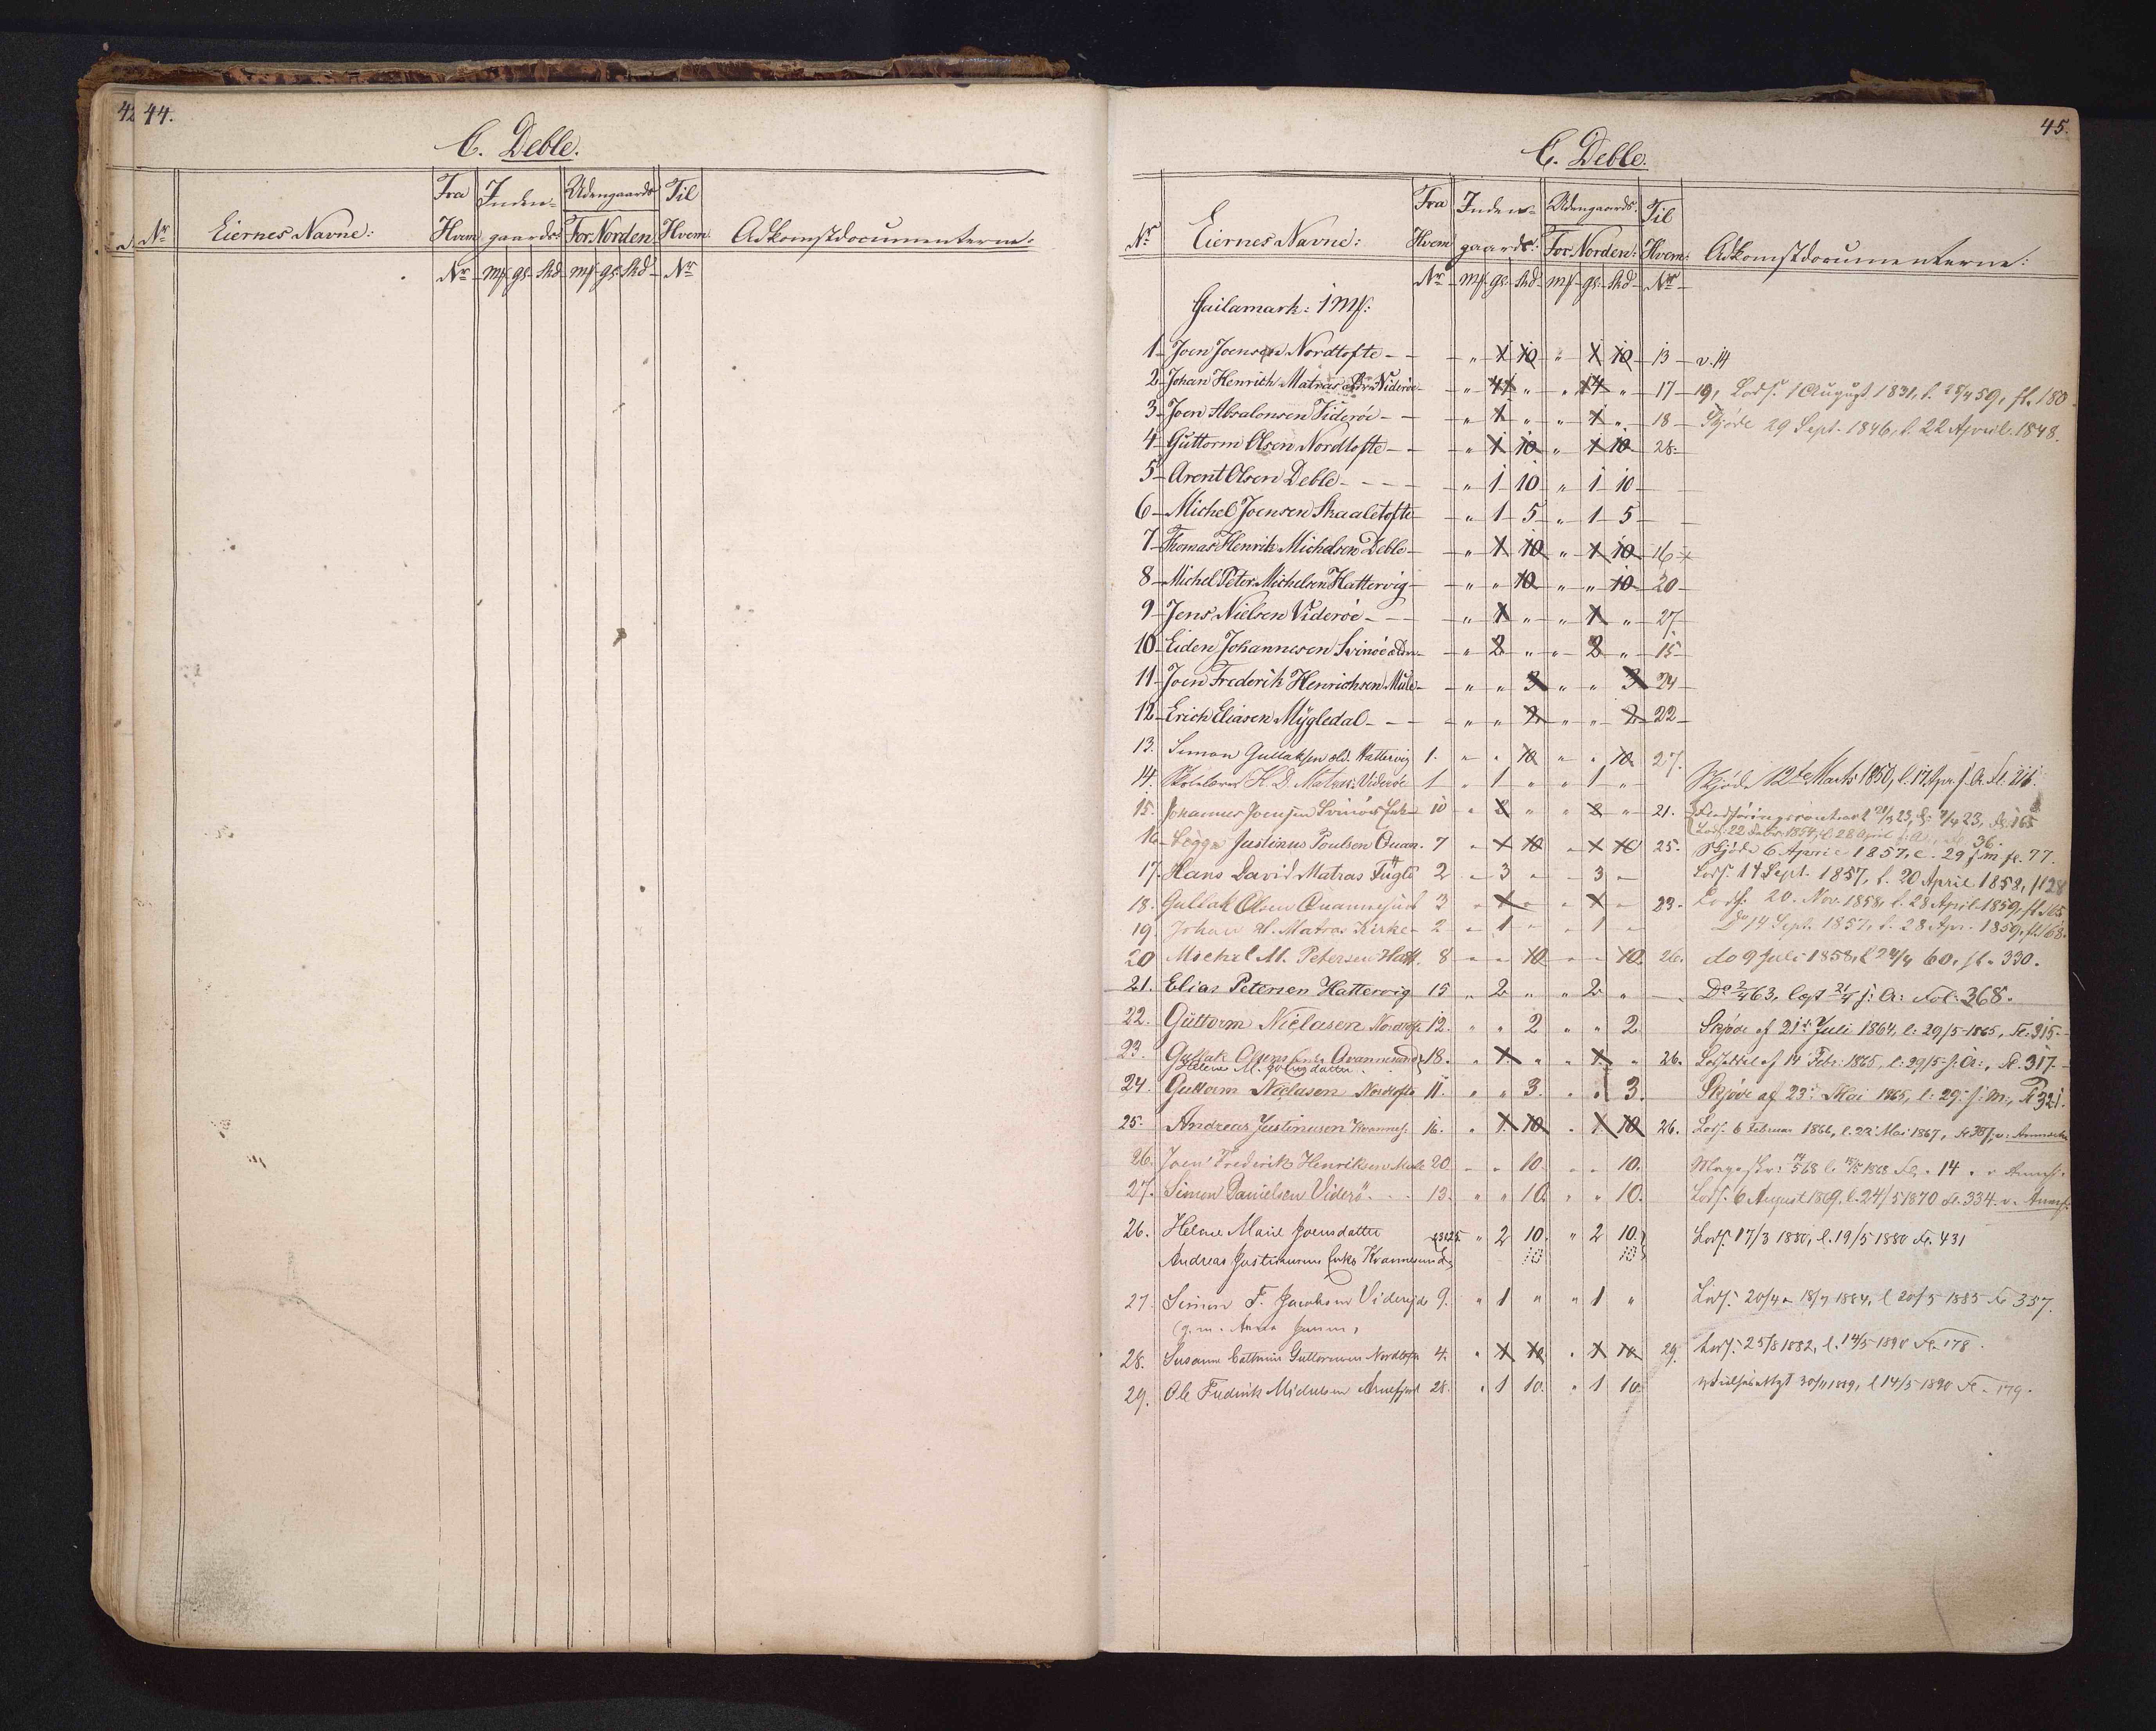 42 44.
C. Deble.
Nr Eiernes Navne: Fra Hvem Inden- gaards: Udengaards For Norden Til Hvem: Adkomstdocumenterne:
Nr mf gs skd mf gs skd Nr
45.
C. Deble.
Nr Eiernes Navne: Fra Hvem Inden- gaards: Udengaards. For Norden: Til Hvem: Adkomstdocumenterne:
Nr mf gs skd mf gs skd Nr
Gailamark: 1 mf:
1 Joen Joensen Nordtofte " 1 10 " 1 10 13 v. 14
2 Johan Henrich Matras Viderøe " 4 " " 4 " 17 19, Lods. 1 August 1831, l. 28/4 59, fl. 180
3 Joen Absalonsen Viderøe " 1 " " 1 " 18 Skjøde 29 Sept. 1846, l. 22 April 1848.
4 Guttorm Olsen Nordtofte " 1 10 " 1 10 28
5 Arent Olsen Deble " 1 10 " 1 10
6 Michel Joensen Skaaletofte " 1 5 " 1 5
7 Thomas Henrik Michelsen Deble " 1 10 " 1 10 16
8 Michel Peter Michelsen Hattervig " " 10 " " 10 20
9 Jens Nielsen Viderøe " 1 " " 1 " 27
10 Eiden Johannesen Svinøe " 2 " " 2 " 15
11 Joen Frederik Henrichsen Mule " " 3 " " 3 24
12 Erich Eliasen Mygledal " " 2 " " 2 22
13. Simon Gullaksen Hattervig 1. " " 10 " " 10 27.
14. H. D. Matras Viderøe 1 " 1 " " 1 " Skjøde 12te Marts 1850, l. 17 Apr. s. A. Fl. 216
15. Johannes Joensen Svinøe 10 " 2 " " 2 " 21.
Lods: 22 1854, l. 28 April 36.
16 Justinus Poulsen Quan. 7 " 1 10 " 1 10 25. Skjøde 6 April 1857, l. 29 s. m. fl. 77.
17. Hans David Matras Fuglø 2 " 3 " " 3 " Lods. 14 Sept. 1857, l. 20 April 1858, fl 128
18. Gullak Olsen Quannesund 3 " 1 " " 1 " 23. Lods. 20. Nov. 1858, l. 28 April 1859, fl 165
19. Johan H. Matras Kirke 2 " 1 " " 1 " Do 14 Sept. 1857, l. 28 Apr. 1859, fl 168.
20 Michel M. Petersen Hatt. 8 " " 10 " " 10. 26. do 9 Juli 1858, l 24/4 60, fl. 330.
21. Elias Petersen Hattervig 15 " 2 " " 2 " Do 2/4 63, lyst 21/4 s: A: Fol: 368.
22. Guttorm Niclasen Nordtofte 12. " " 2 " " 2 Skjøde af 21de Juli 1864, l: 29/5-1865, Fl. 315.
23. Gullak Olsens Enke Qvannesund 18. " 1. " " 1. " 26. af 14 Febr. 1865, l: 29/5- s: A:, Fl. 317.
Helene M. Joensdatter
24. Guttorm Niclasen Nordtofte 11. " " 3. " " 3. Skjøde af 23de Mai 1865, l: 29 s: M:, Fl 321.
25. Andreas Justinusen Kvannes. 16. " 1. 10 " 1. 10 26. Lods. 6 Februar 1866, l. 22 Mai 1867,
26. Joen Frederik Henriksen Mule 20 " " 10. " " 10. 14/5 68 l. 15/5 1868 Fl. 14.
27. Simon Danielsen Viderø 13. " " 10. " " 10. Lods. 6 August 1869, l. 24/5 1870 fl. 334.
26. Helene Marie Joensdatter 23 & 25 " 2 10. " 2 10. Lods. 17/3 1880, l. 19/5 1880 Fl. 431
Andreas Justinusens Enke Kvannesund
27. Simon F. Jacobsen Viderejde 9. " 1 " " 1 " Lods. 20/4 18/7 1884, l 20/5 1885 Fl 337.
28. Susanne Cathrine Guttormsen Nordtofte 4. " 1 10 " 1 10 29. Lods. 25/8 1882, l. 14/5-1890 Fl. 178.
29. Ole Frederik Michelsen Arnefjord 28. " 1 10. " 1 10 30/11 1889, l 14/5-1890 Fl. 179.